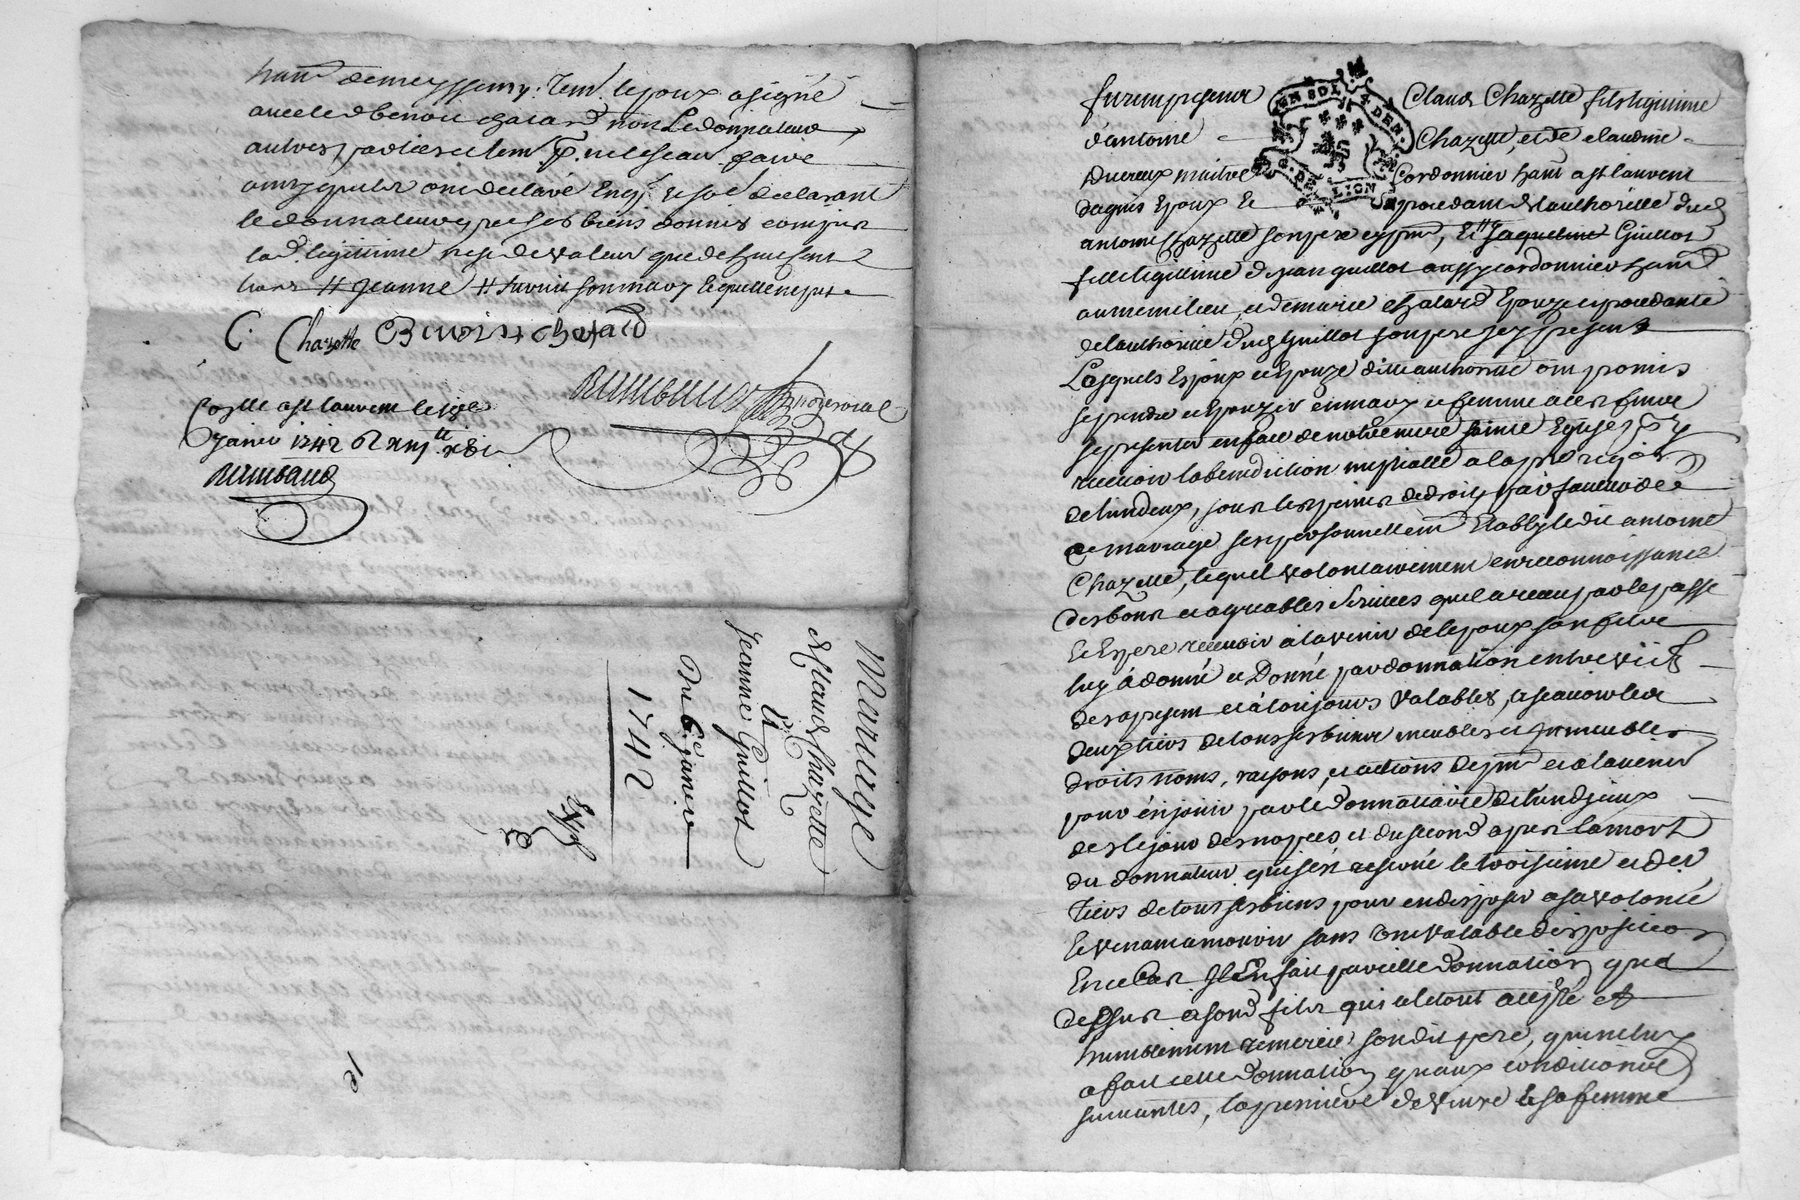 hant de meyssemy. Item lepoux a signé
avec led benoit chalard non Le donnateur
autres parties et tem. p. ne le scavoir faire
ainsy quils ont declaré Enqs. et so.es declarant
le donnateur que ses biens donnés compris
la d. legitime n'est de valeur que de huit cent
livres # Jeanne # survie sommary lequelle ne put
C. Chazette Benoist Chalard
Rimbaud Nore royal
Con.lle a st laurent le size
Janvier 1742 R xiij ll x s
Rimbaud
Mariage
Claude Chazette
&
Jeanne Guillot
Du 6e. janvier
1742
Exp.
furent presents Claude Chazette fils legitime
d'antoine Chazette, et de claudine
Ducreux maitre Cordonnier hant a st laurent
dagnis Epoux et procedant de lauthorité dud
antoine Chazette son pere cy pnt, Et # Jaqueline Guillot
fille legitime de jean guillot aussy cordonnier hant
au meme lieu, et de marie chalard Epouze et procedante
de lauthorité dud guillot son pere icy present
Lesquels Epoux et Epouze dite authorité ont promis
se prendre et Epouzer en mary et femme a ces fins se
se presenter en face de notre mere sainte Eglise pr y
recevoir la benediction nuptialle a la pre. reqon
de l'un deux, sous les peines de droit, par faveur de
ce mariage sest personnellemt Etably le dit antoine
Chazette, lequel volontairement en reconnoissance
des bons et agreables services quil a receu par le passe
Et Espere recevoir a lavenir de lepoux son fils
luy a donné et Donne par donnation entre vifs
des apresent et a toujours valables, a scavoir les
deux tiers de tous ses biens meubles et immeubles
droits noms, raisons, et actions de pnt et a lavenir
pour en jouir par le donnataire de l'un dyceux
des le jour des nopces et du second apres la mort
du donnateur qui s'est reservé le troisieme et der
tiers de tous ses biens pour en disposer a sa volonté
Et venant a mourir sans une valable disposition
En ce Cas Il En fait pareille donnation que
dessus a sond fils qui le tout accepte et
humblement remercie son dit pere, qui ne luy
a fait cette donnation qu'aux conditions
suivantes, la premiere de vivre et sa femme
GN SOL 4 DEN.
G. DE LION